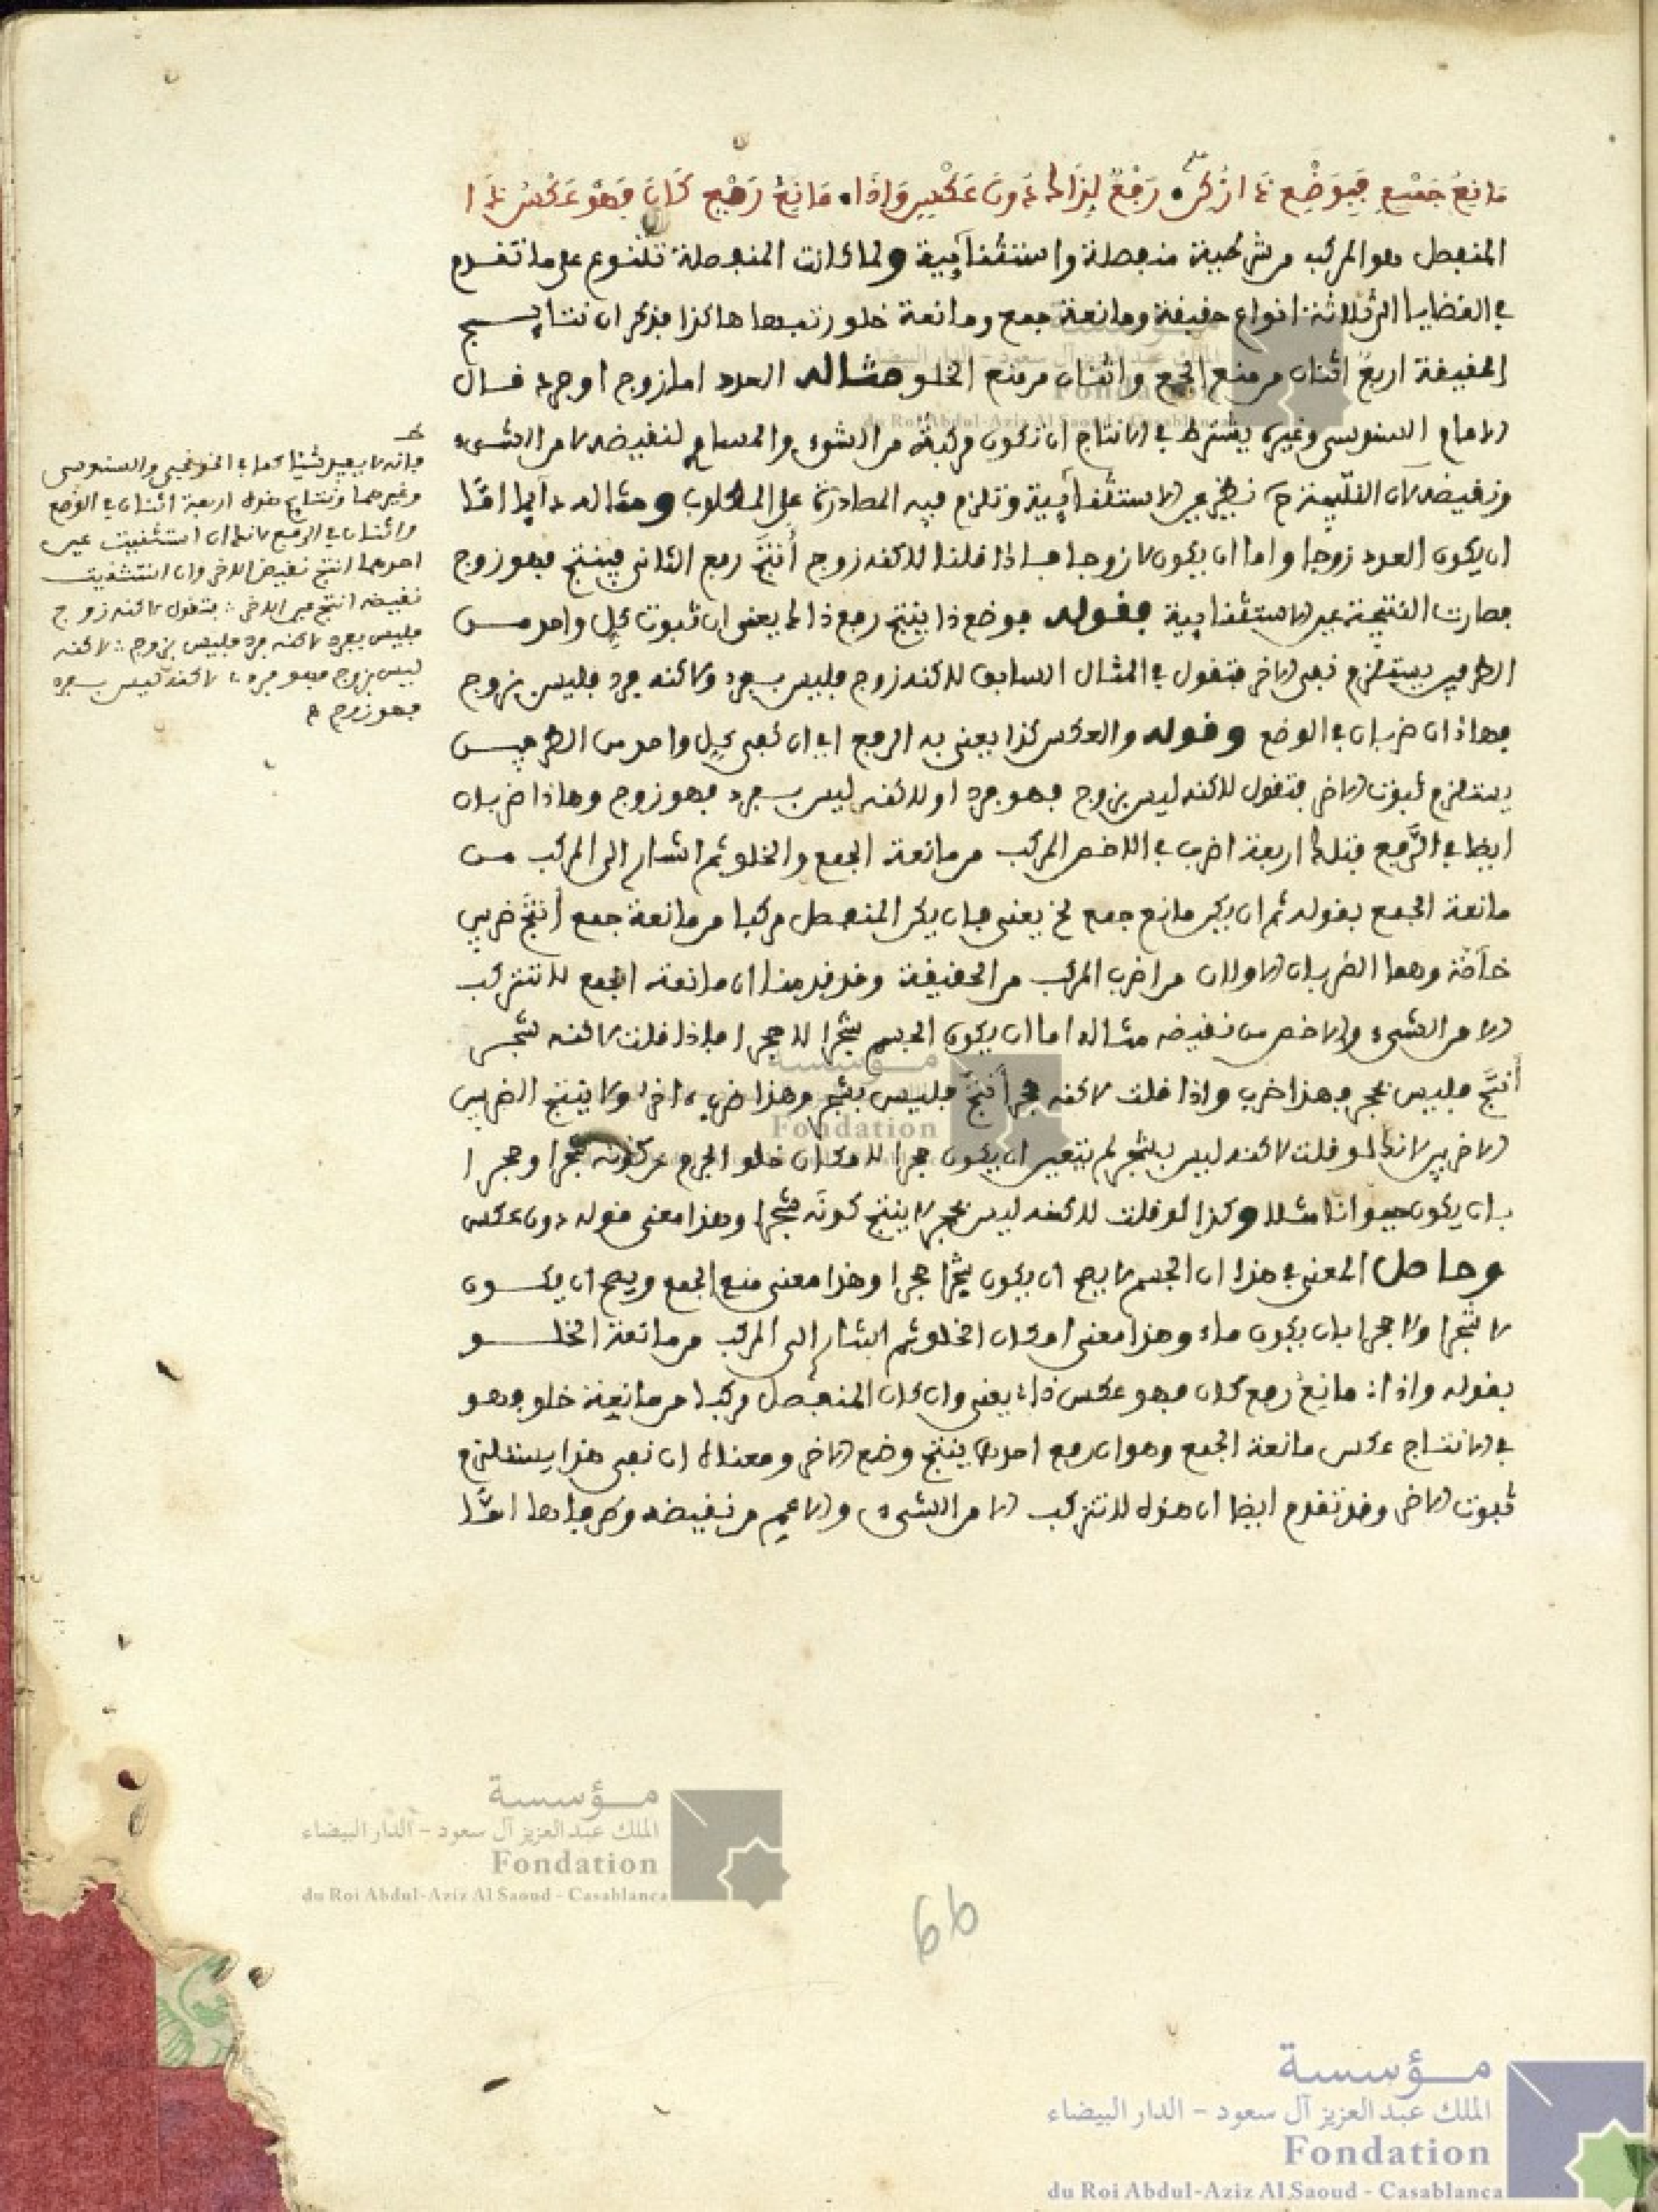 مَانِعُ جَمْعٍ فَبِوَضْعِ ذَا زُكِنْ رَفْعٌ لِذَاكَ دُونَ عَكْسٍ وَإِذَا مَانِعُ رَفْعٍ كَانَ فَهْوَ عَكْسُ ذَا
المنفصل هو المركب من شرطية منفصلة واستثنائية ولما كانت المنفصلة تتنوع على ما تقدم
في القضايا الى ثلاثة انواع حقيقة ومانعة جمع ومانعة خلو رتبها هاكذا فذكر ان نتايج
الحقيقة اربع اثنان من منع الجمع واثنان من منع الخلو مثاله العدد اما زوج او فرد قال
الامام السنوسي وغيره يشترط في الانتاج ان تكون مركبة من الشيء والمساوي لنقيضه لا من الشيء
ونقيضه لان النتيجة تكون عين الاستثنائية وتلزم فيه المصادرة على المطلوب ومثاله دايما اما
ان يكون العدد زوجا واما ان يكون لا زوجا فاذا قلنا لاكنه زوج أنتج رفع الثاني فينتج فهو زوج
فصارت النتيجة عين الاستثنائية فقوله فوضع ذا ينتج رفع ذاك يعني ان ثبوت كل واحد من
الطرفين يستلزم نفي الاخر فتقول في المثال السابق لاكنه زوج فليس بفرد ولاكنه فرد فليس بزوج
فهاذان ضربان في الوضع وقوله والعكس كذا يعني به الرفع اي ان نفي كل واحد من الطرفين
يستلزم ثبوت الاخر فتقول لاكنه ليس بزوج فهو فرد او لاكنه ليس بفرد فهو زوج وهاذا ضربان
ايضا في الرفع فتلك اربعة اضرب في الاخص المركب من مانعة الجمع والخلو ثم اشار الى المركب من
مانعة الجمع بقوله ثم ان يكن مانع جمع الخ يعني فان يكن المنفصل مركبا من مانعة جمع أنتج ضربين
خاصة وهما الضربان الاولان من اضرب المركب من الحقيقة وقد قدمنا ان مانعة الجمع لا تتركب
الا من الشيء والاخص من نقيضه مثاله اما ان يكون الجسم شجرا او حجرا فاذا قلت لاكنه شجر
أنتج فليس بحجر وهذا ضرب واذا قلت لاكنه حجر أنتج فليس بشجر وهذا ضرب اخر ولا ينتج الضربين
الاخرين لانك لو قلت لاكنه ليس بشجر لم يتعين ان يكون حجرا لامكان خلو الجرم عن كونه شجرا وحجرا
بان يكون حيوانا مثلا وكذا لو قلت لاكنه ليس بحجر لا ينتج كونه شجرا وهذا معنى قوله دون عكس
وحاصل المعنى في هذا ان الجسم لا يصح ان يكون شجرا حجرا وهذا معنى منع الجمع ويصح ان يكون
لا شجرا ولا حجرا بان يكون ماء وهذا معنى امكان الخلو ثم اشار الى المركب من مانعة الخلو
بقوله واذا مانع رفع كان فهو عكس ذا يعني وان كان المنفصل مركبا من مانعة خلو فهو
في الانتاج عكس مانعة الجمع وهو ان رفع احدها ينتج وضع الاخر ومعناه ان نفي هذا يستلزم
ثبوت الاخر وقد تقدم ايضا ان هذه لا تتركب الا من الشيء والاعم من نقيضه وطرفاها اما
فانه لا يفيد شيئا كما في الخونجي والسنوسي
وغيرهما ونتايج هذه اربعة اثنان في الوضع
واثنان في الرفع لانك ان استثنيت عين
احدهما انتج نقيض الاخر وان استثنيت
نقيضه انتج عين الاخر فتقول لاكنه زوج
فليس بفرد لاكنه فرد فليس بزوج لاكنه
ليس بزوج فهو فرد لاكنه ليس بفرد
فهو زوج
66
مؤسسة
الملك عبد العزيز آل سعود - الدار البيضاء
Fondation
du Roi Abdul-Aziz Al Saoud - Casablanca